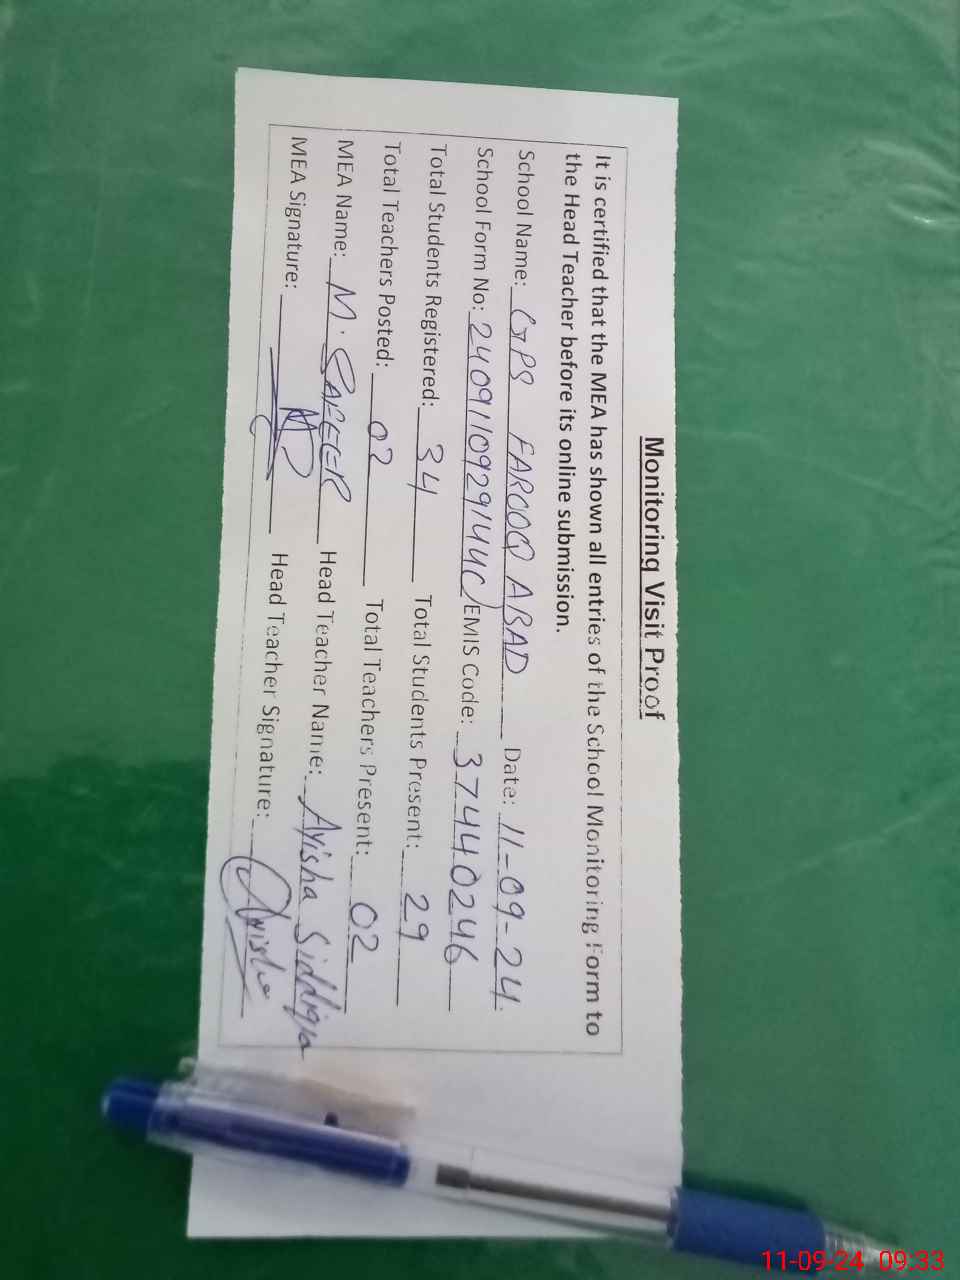 Monitoring Visit Proof
It is certified that the MEA has shown all entries of the School Monitoring Form to
the Head Teacher before its online submission.
School Name: GPS FAROOQ ABAD Date: 11-09-24
School Form No: 2409110929144C EMIS Code: 37440246
Total Students Registered: 34 Total Students Present: 29
Total Teachers Posted: 02 Total Teachers Present: 02
MEA Name: M. SAFEER Head Teacher Name: Ayisha Siddiqa
MEA Signature: Head Teacher Signature: Ayisha
11-09-24 09:33